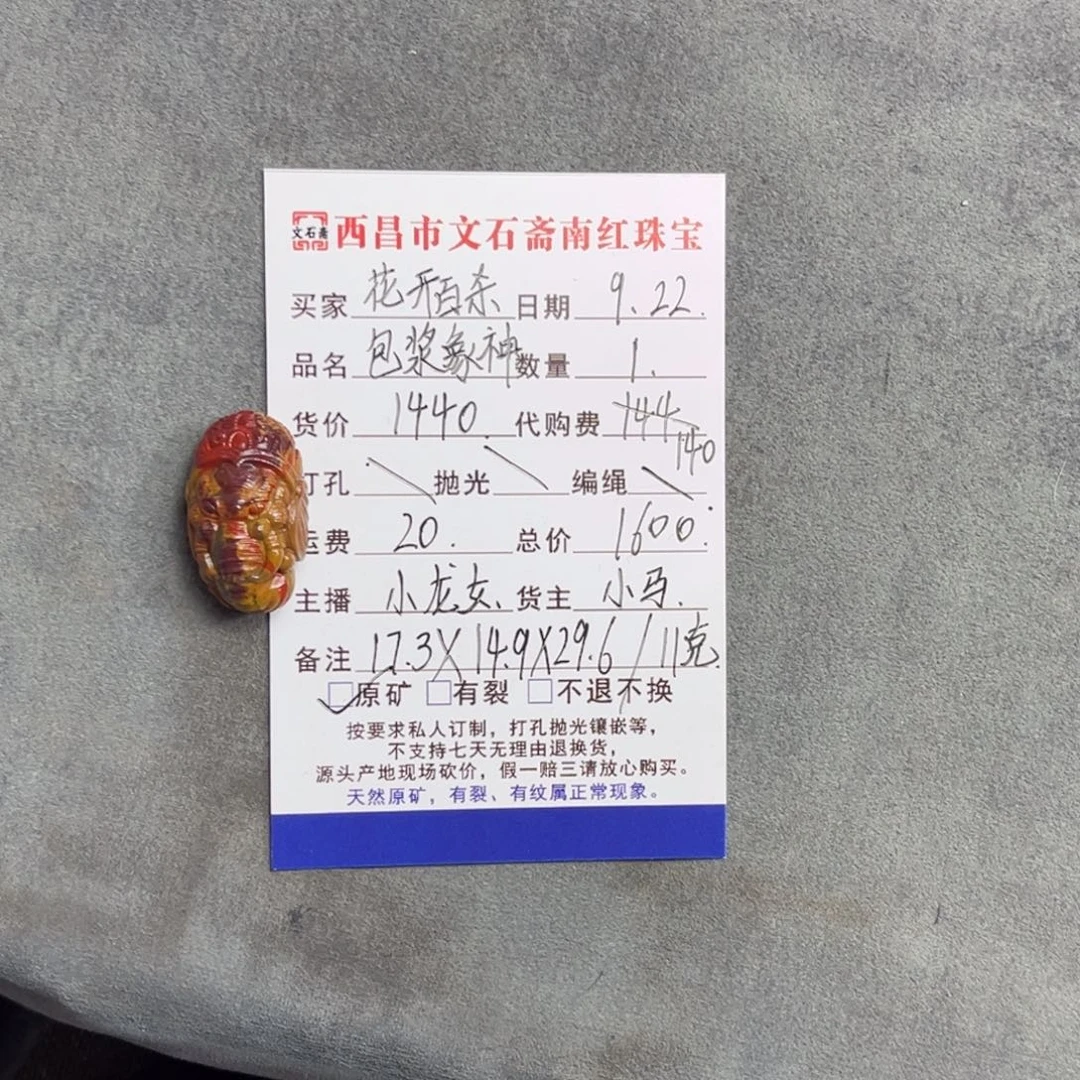 文石斋 西昌市文石斋南红珠宝
买家 花开百杀 日期 9.22.
品名 包浆象神 数量 1.
货价 1440. 代购费 144
140
打孔 \ 抛光 \ 编绳 \
运费 20. 总价 1600.
主播 小龙女、 货主 小马.
备注 17.3X14.9X29.6/11克
☑原矿 □有裂 □不退不换
按要求私人订制，打孔抛光镶嵌等，
不支持七天无理由退换货，
源头产地现场砍价，假一赔三请放心购买。
天然原矿，有裂、有纹属正常现象。